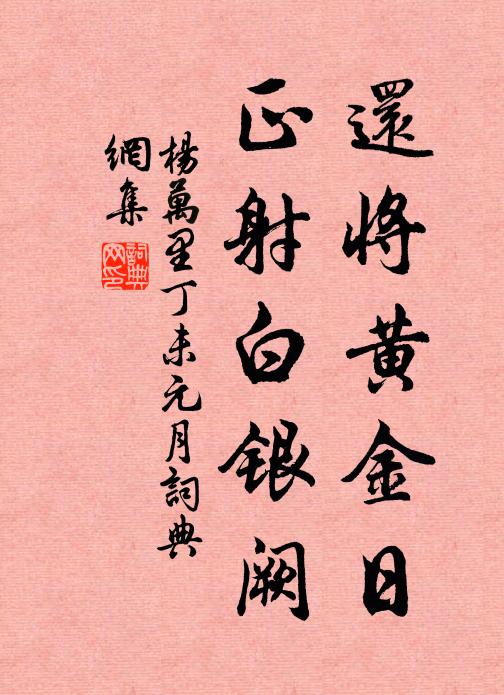 還將黃金日
正射白銀闕
楊萬里丁未元月詞典
網集
詞典
网印